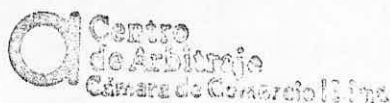 Centro
de Arbitraje
Cámara de Comercio | Lima